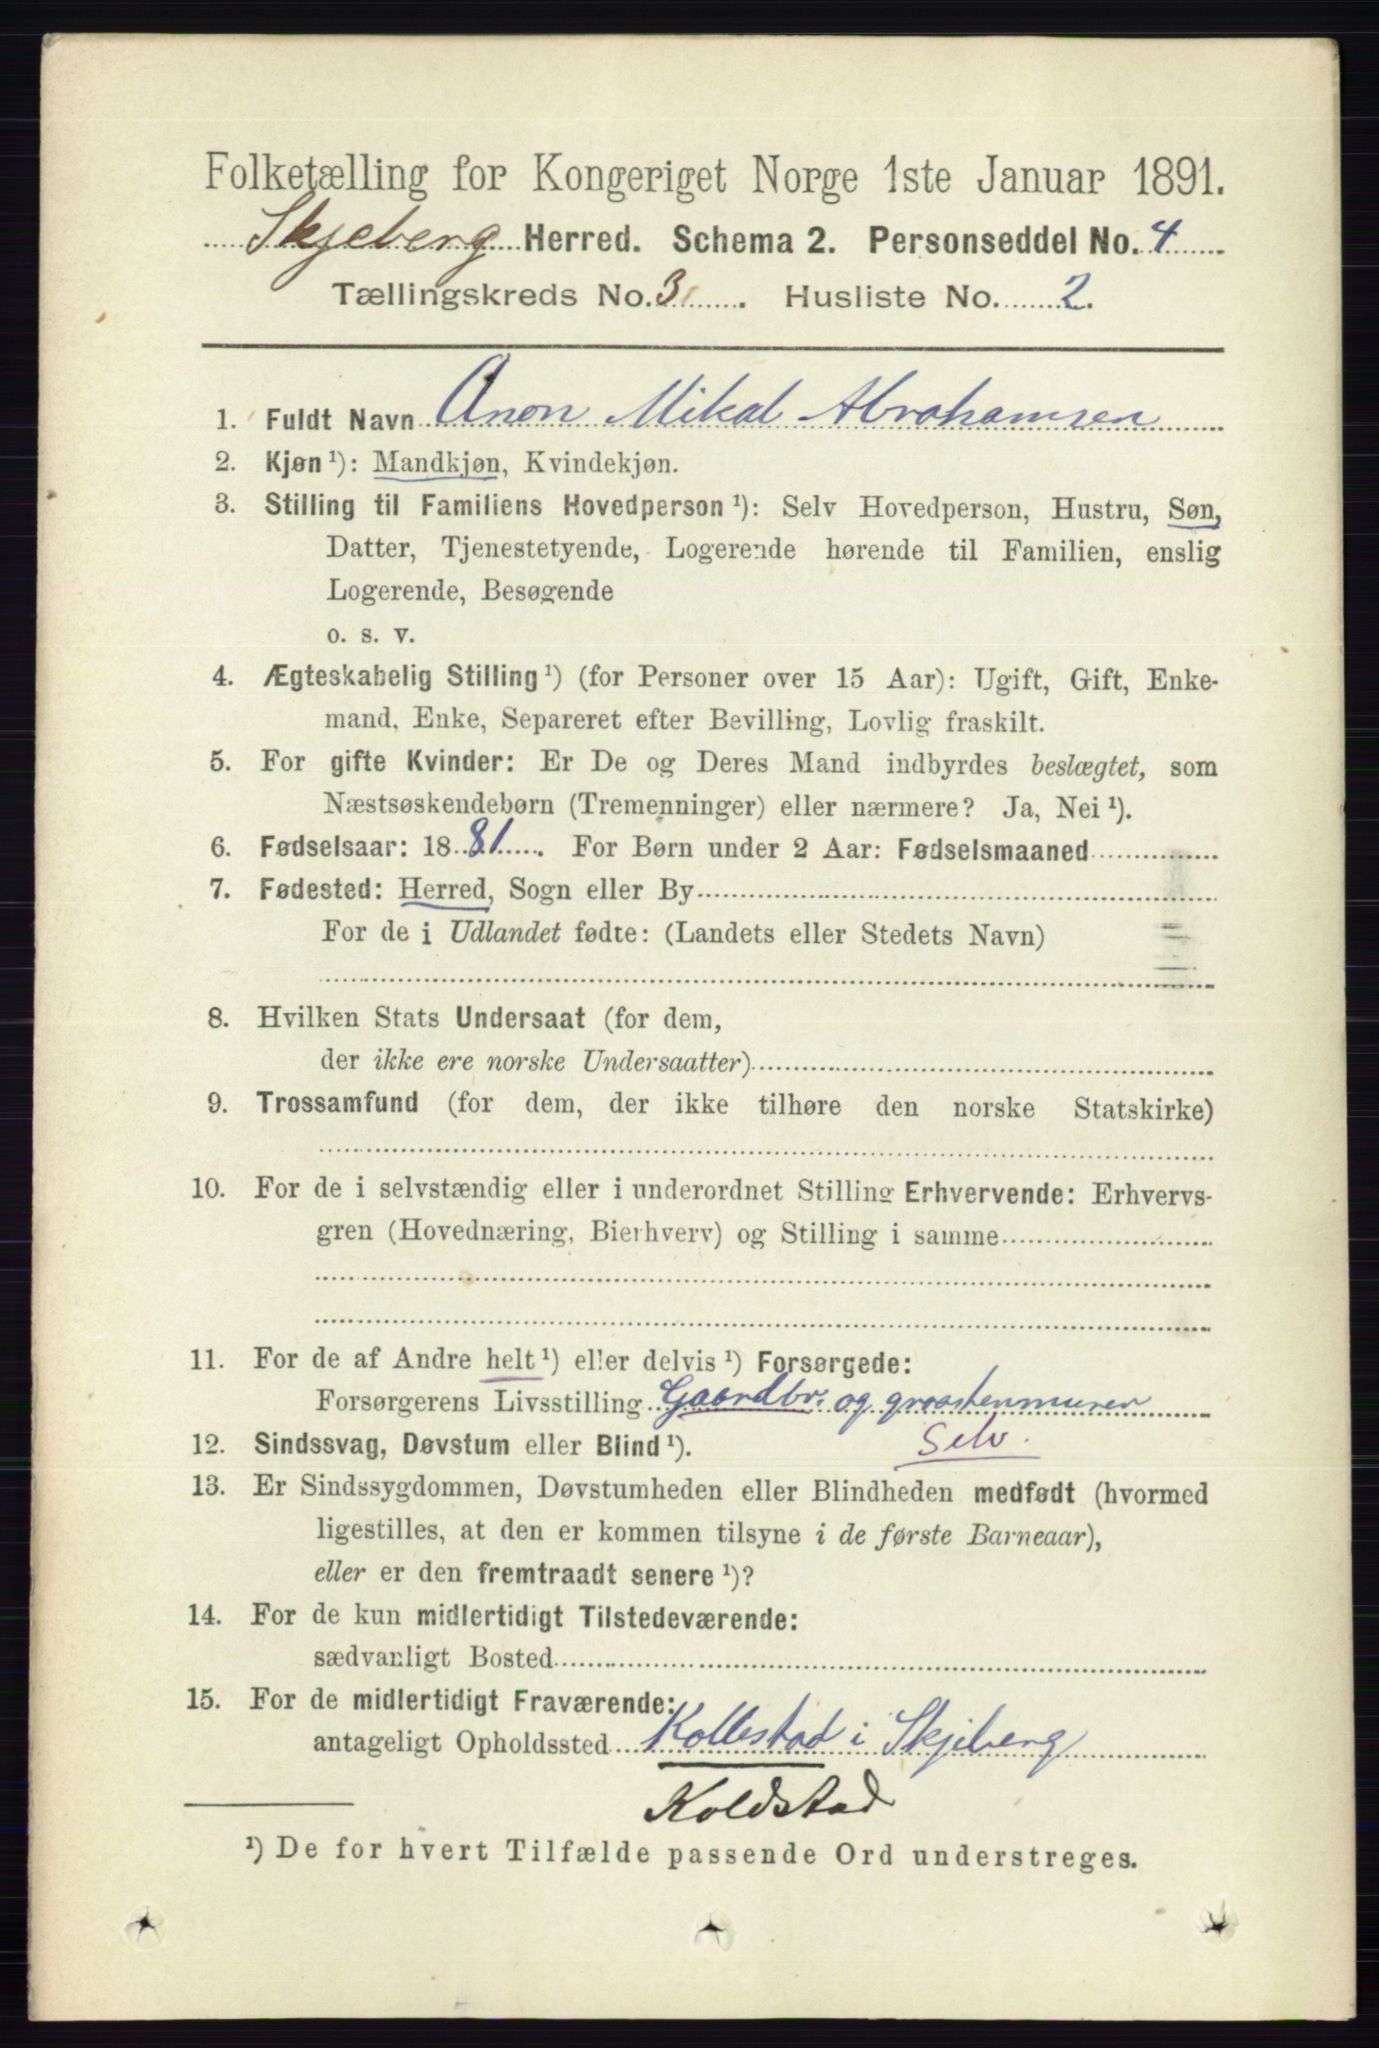 Folketælling for Kongeriget Norge 1ste Januar 1891.
Skjeberg Herred. Schema 2. Personseddel No. 4
Tællingskreds No. 3. Husliste No. 2.
1. Fuldt Navn Anon Mikal Abrahamsen
2. Kjøn ¹): Mandkjøn, Kvindekjøn.
3. Stilling til Familiens Hovedperson ¹): Selv Hovedperson, Hustru, Søn,
Datter, Tjenestetyende, Logerende hørende til Familien, enslig
Logerende, Besøgende
o. s. v.
4. Ægteskabelig Stilling ¹) (for Personer over 15 Aar): Ugift, Gift, Enke-
mand, Enke, Separeret efter Bevilling, Lovlig fraskilt.
5. For gifte Kvinder: Er De og Deres Mand indbyrdes beslægtet, som
Næstsøskendebørn (Tremenninger) eller nærmere? Ja, Nei ¹).
6. Fødselsaar: 1881. For Børn under 2 Aar: Fødselsmaaned
7. Fødested: Herred, Sogn eller By
For de i Udlandet fødte: (Landets eller Stedets Navn)
8. Hvilken Stats Undersaat (for dem,
der ikke ere norske Undersaatter)
9. Trossamfund (for dem, der ikke tilhøre den norske Statskirke)
10. For de i selvstændig eller i underordnet Stilling Erhvervende: Erhvervs-
gren (Hovednæring, Bierhverv) og Stilling i samme
11. For de af Andre helt ¹) eller delvis ¹) Forsørgede:
Forsørgerens Livsstilling Gaardbr. og graastenmurer
Selv.
12. Sindssvag, Døvstum eller Blind ¹).
13. Er Sindssygdommen, Døvstumheden eller Blindheden medfødt (hvormed
ligestilles, at den er kommen tilsyne i de første Barneaar),
eller er den fremtraadt senere ¹)?
14. For de kun midlertidigt Tilstedeværende:
sædvanligt Bosted
15. For de midlertidigt Fraværende:
antageligt Opholdssted Kollestad i Skjeberg
Koldstad
¹) De for hvert Tilfælde passende Ord understreges.